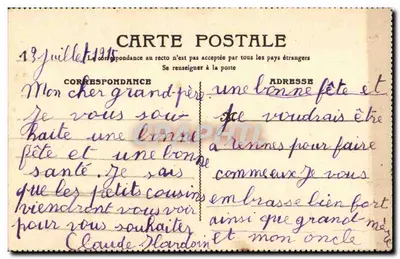 13 juillet 1915
CARTE POSTALE
correspondance au recto n'est pas acceptée par tous les pays étrangers
Se renseigner à la poste
CORRESPONDANCE
Mon cher grand-père
Je vous sou-
haite une bonne
fête et une bonne
santé. Je sais
que les petits cousins
viendront vous voir
pour vous souhaiter
Claude Hardoin
ADRESSE
une bonne fête et
je voudrais être
à rennes pour faire
comme eux Je vous
embrasse bien fort
ainsi que grand-mère
et mon oncle